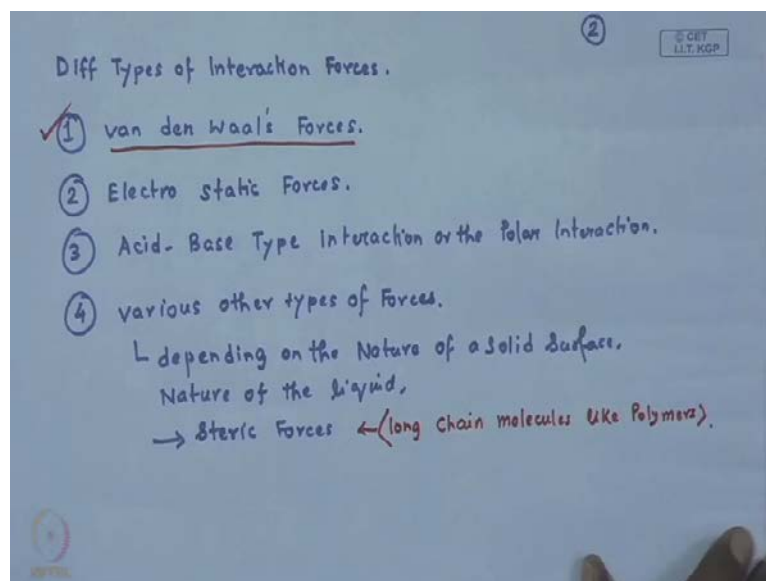 ②
© CET
I.I.T. KGP
Diff Types of Interaction Forces.
① van den Waal's Forces.
② Electro static Forces.
③ Acid-Base Type interaction or the Polar Interaction.
④ various other types of Forces.
depending on the Nature of a Solid Surface.
Nature of the liquid.
→ Steric Forces ←(long chain molecules like Polymers).